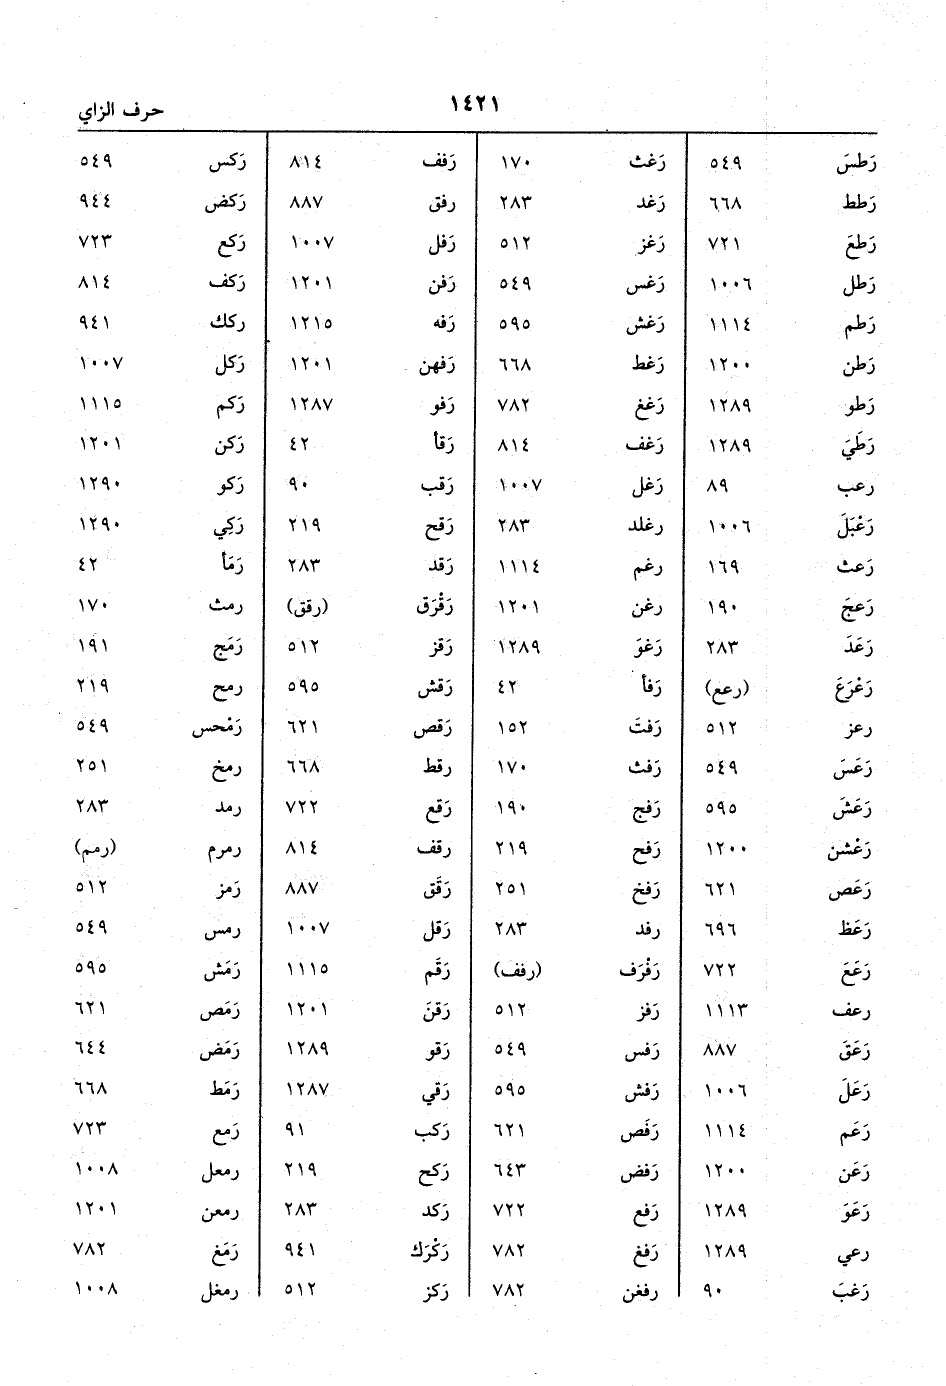 حرف الزاي ١٤٢١
رَطسَ ٥٤٩ رَغث ١٧٠ رَفف ٨١٤ رَكس ٥٤٩
رَطط ٦٦٨ رَغد ٢٨٣ رفق ٨٨٧ رَكض ٩٤٤
رَطعَ ٧٢١ رَغز ٥١٢ رَفل ١٠٠٧ رَكع ٧٢٣
رَطل ١٠٠٦ رَغس ٥٤٩ رَفن ١٢٠١ رَكف ٨١٤
رَطم ١١١٤ رَغش ٥٩٥ رَفه ١٢١٥ ركك ٩٤١
رَطن ١٢٠٠ رَغط ٦٦٨ رَفهن ١٢٠١ رَكل ١٠٠٧
رَطو ١٢٨٩ رَغغ ٧٨٢ رَفو ١٢٨٧ رَكم ١١١٥
رَطَيَ ١٢٨٩ رَغف ٨١٤ رَقأ ٤٢ رَكن ١٢٠١
رعب ٨٩ رَغل ١٠٠٧ رَقب ٩٠ رَكو ١٢٩٠
رَعْبَلَ ١٠٠٦ رغلد ٢٨٣ رَقح ٢١٩ رَكِي ١٢٩٠
رَعث ١٦٩ رغم ١١١٤ رَقد ٢٨٣ رَمَأ ٤٢
رَعجَ ١٩٠ رغن ١٢٠١ رَقْرَق (رقق) رمث ١٧٠
رَعَدَ ٢٨٣ رَغوَ ١٢٨٩ رَقز ٥١٢ رَمَج ١٩١
رَعْرَعَ (رعع) رَفأ ٤٢ رَقش ٥٩٥ رمح ٢١٩
رعز ٥١٢ رَفتَ ١٥٢ رَقص ٦٢١ رَمْحس ٥٤٩
رَعَسَ ٥٤٩ رَفث ١٧٠ رقط ٦٦٨ رمخ ٢٥١
رَعَشَ ٥٩٥ رَفج ١٩٠ رَقع ٧٢٢ رمد ٢٨٣
رَعْشن ١٢٠٠ رَفح ٢١٩ رقف ٨١٤ رمرم (رمم)
رَعَص ٦٢١ رَفخ ٢٥١ رَقَق ٨٨٧ رَمز ٥١٢
رَعَظ ٦٩٦ رفد ٢٨٣ رَقل ١٠٠٧ رمس ٥٤٩
رَعَعَ ٧٢٢ رَفْرَف (رفف) رَقَم ١١١٥ رَمَش ٥٩٥
رعف ١١١٣ رَفز ٥١٢ رَقنَ ١٢٠١ رَمَص ٦٢١
رَعَقَ ٨٨٧ رَفس ٥٤٩ رَقو ١٢٨٩ رَمَض ٦٤٤
رَعَلَ ١٠٠٦ رَفش ٥٩٥ رَقي ١٢٨٧ رَمَط ٦٦٨
رَعَم ١١١٤ رَفَص ٦٢١ رَكب ٩١ رَمع ٧٢٣
رَعَن ١٢٠٠ رَفض ٦٤٣ رَكح ٢١٩ رمعل ١٠٠٨
رَعَوَ ١٢٨٩ رَفع ٧٢٢ رَكد ٢٨٣ رمعن ١٢٠١
رعي ١٢٨٩ رَفغ ٧٨٢ رَكْرَك ٩٤١ رَمَغ ٧٨٢
رَغبَ ٩٠ رفغن ٧٨٢ رَكز ٥١٢ رمغل ١٠٠٨